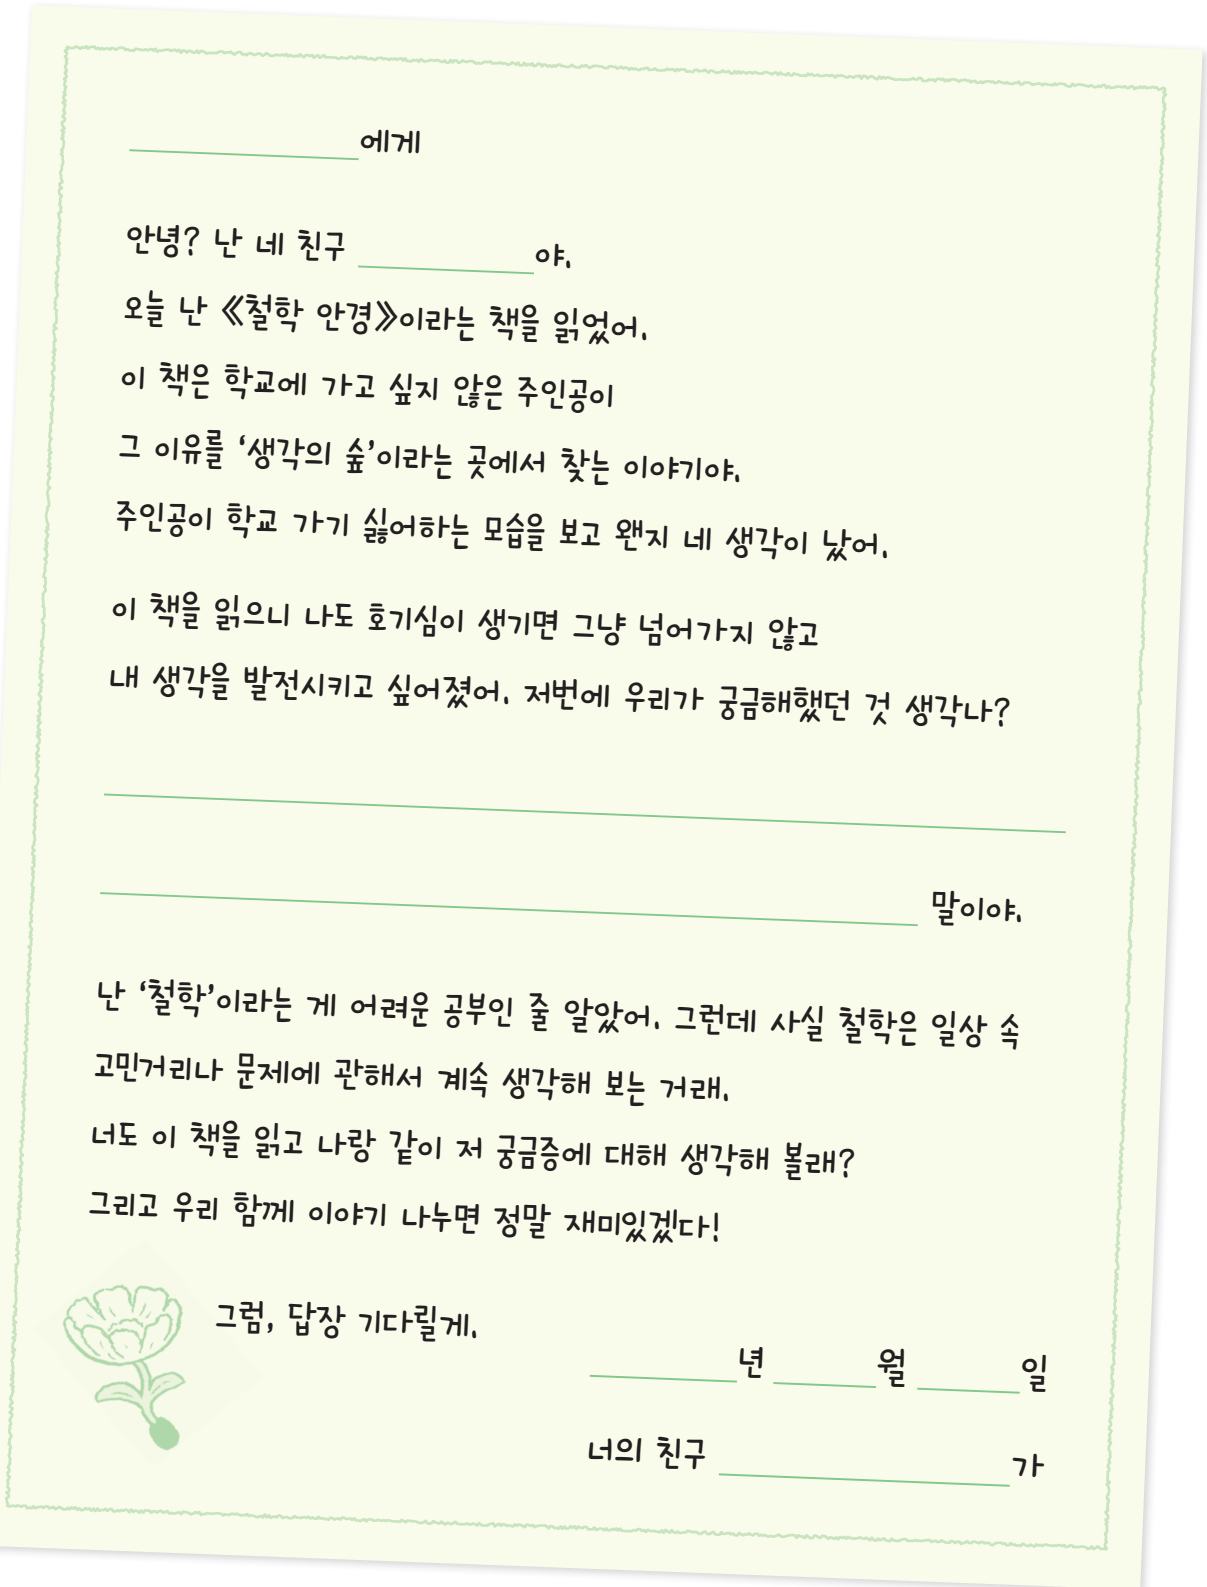 에게
안녕? 난 네 친구 야.
오늘 난 《철학 안경》이라는 책을 읽었어.
이 책은 학교에 가고 싶지 않은 주인공이
그 이유를 ‘생각의 숲’이라는 곳에서 찾는 이야기야.
주인공이 학교 가기 싫어하는 모습을 보고 왠지 네 생각이 났어.
이 책을 읽으니 나도 호기심이 생기면 그냥 넘어가지 않고
내 생각을 발전시키고 싶어졌어. 저번에 우리가 궁금해했던 것 생각나?
말이야.
난 ‘철학’이라는 게 어려운 공부인 줄 알았어. 그런데 사실 철학은 일상 속
고민거리나 문제에 관해서 계속 생각해 보는 거래.
너도 이 책을 읽고 나랑 같이 저 궁금증에 대해 생각해 볼래?
그리고 우리 함께 이야기 나누면 정말 재미있겠다!
그럼, 답장 기다릴게.
년 월 일
너의 친구 가